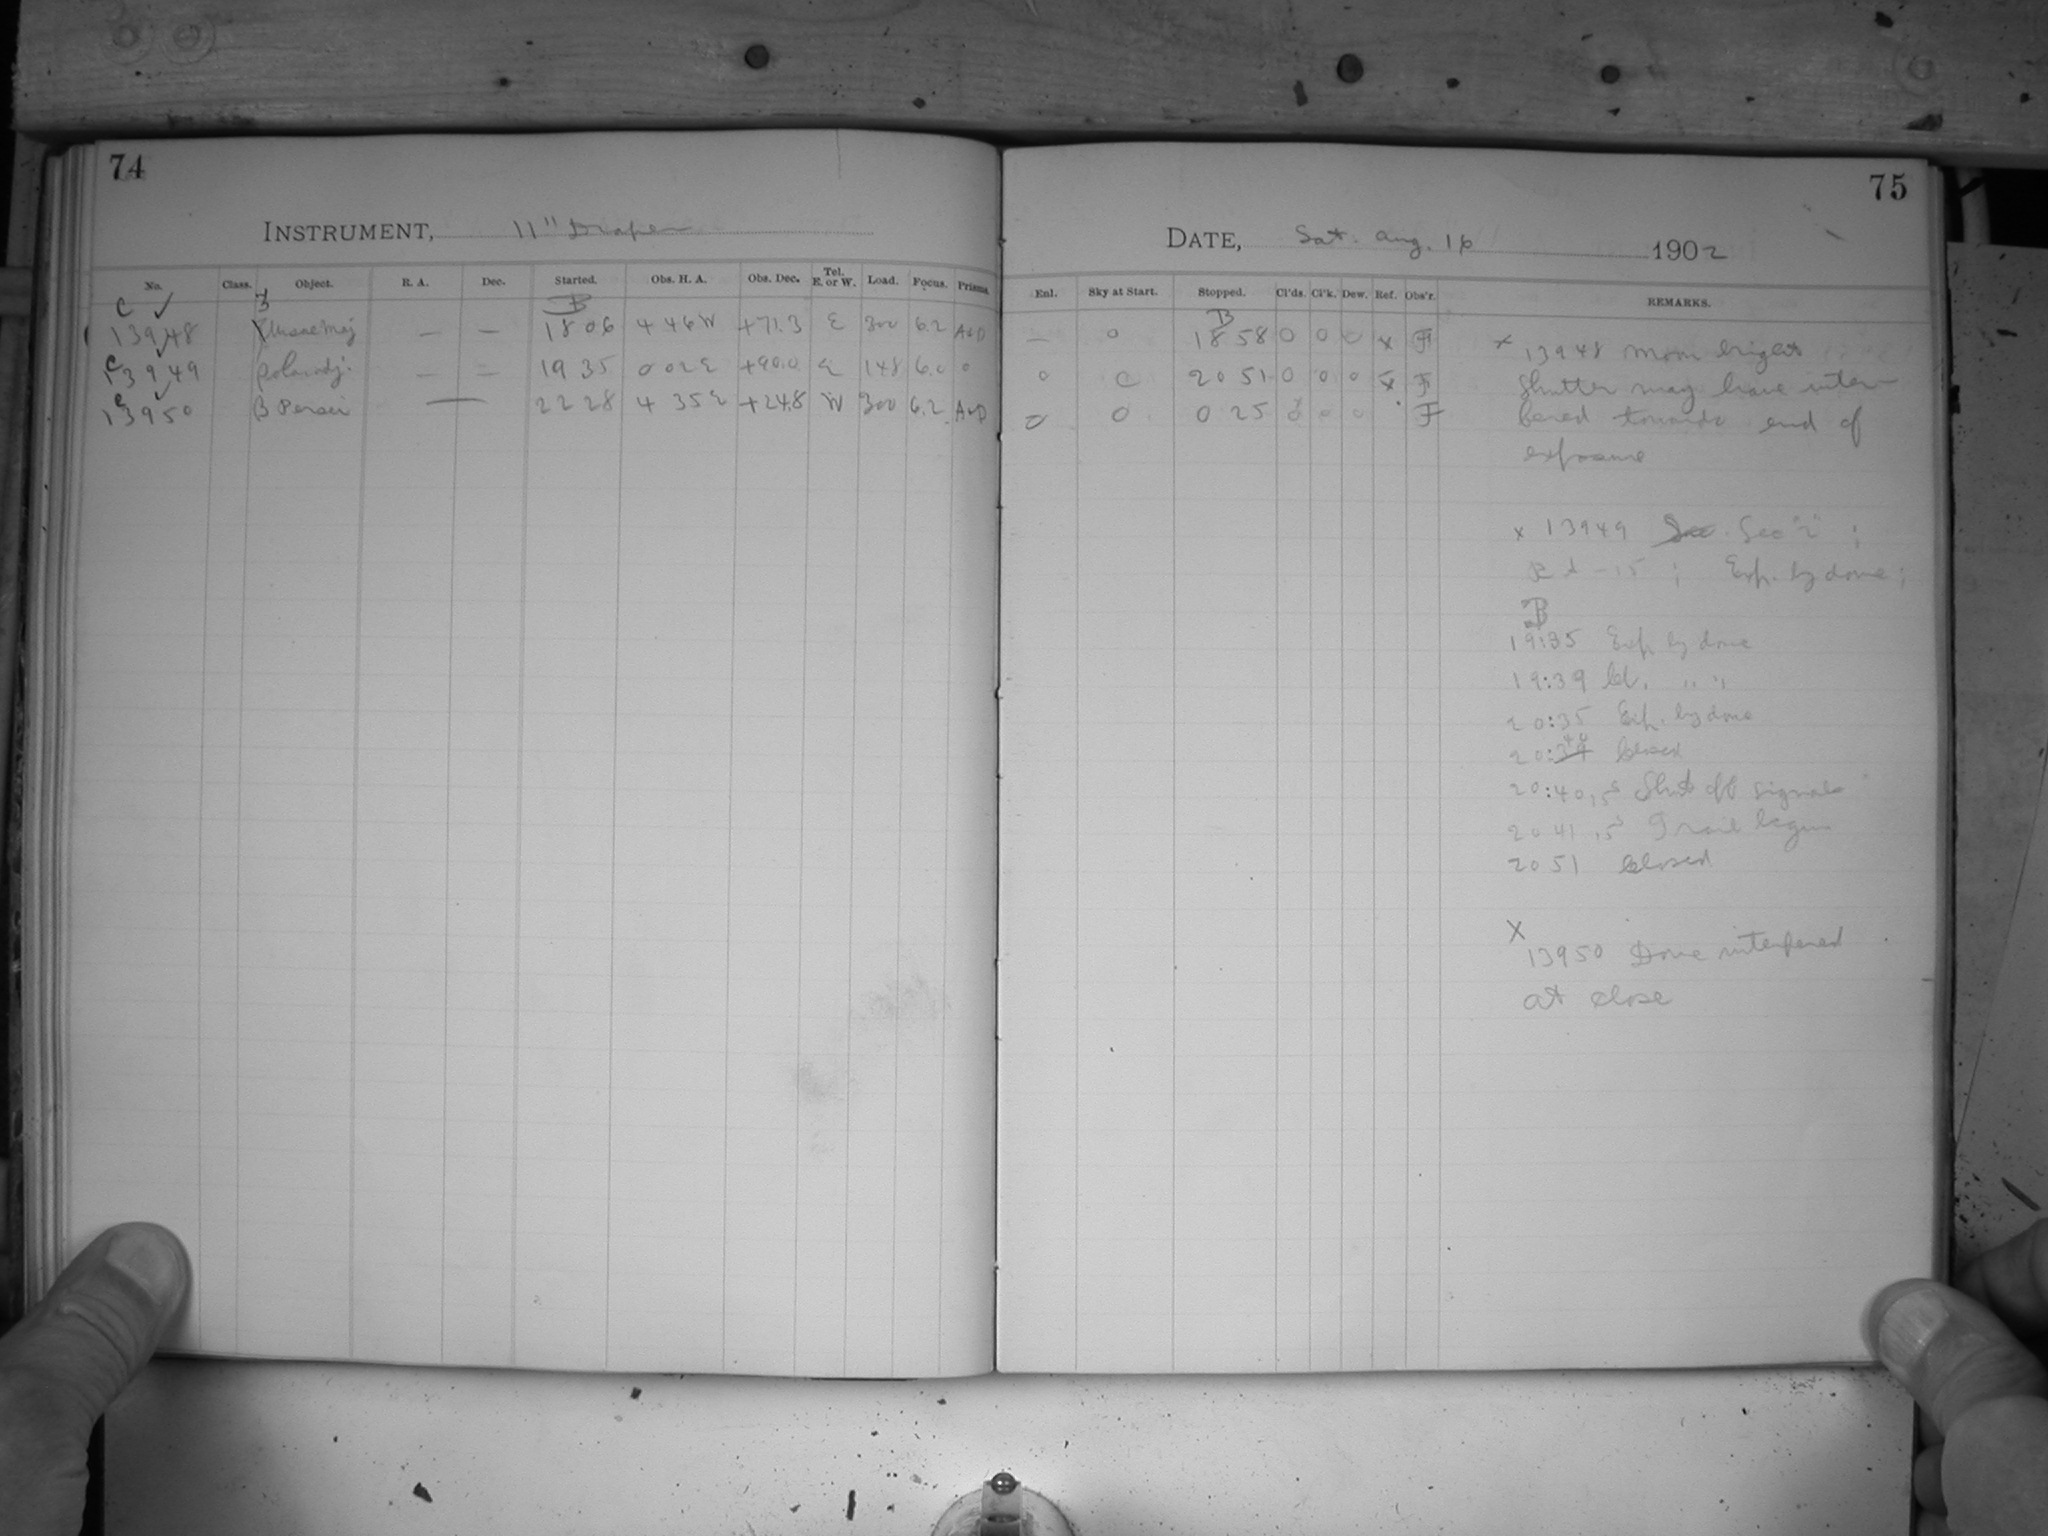 74
INSTRUMENT, 11" Draper
No. Class. Object. R. A. Dec. Started. Obs. H. A. Obs. Dec. Tel. E. or W. Load. Focus. Prisms.
C ✓ B
13948 Ursae Maj — — 18 06 4 46 W +71.3 E 300 6.2 A&D
C 13949 Polar adj. — — 19 35 0 02 E +90.0 E 148 6.0 0
C 13950 β Persei — 22 28 4 35 E +24.8 W 300 6.2 A&D
75
DATE, Sat. Aug. 16 1902
Enl. Sky at Start. Stopped. Cl'ds. Cl'k. Dew. Ref. Obs'r. REMARKS.
B
— 0 18 58 0 0 0 x F
0 C 20 51 0 0 0 x F
0 0 0 25 0 0 0 F
x 13948 Moon bright
Shutter may have inter-
fered towards end of
exposure
x 13949 See. Sec "2" ;
Rd -15 ; Exp. by dome ;
B
19:35 Exp. by dome
19:39 Cl. " "
20:35 Exp. by dome
20:39 40 Closed
20:40,5s Shut off signals
20 41,5s Trail begun
20 51 Closed
X
13950 Dome interfered
at close